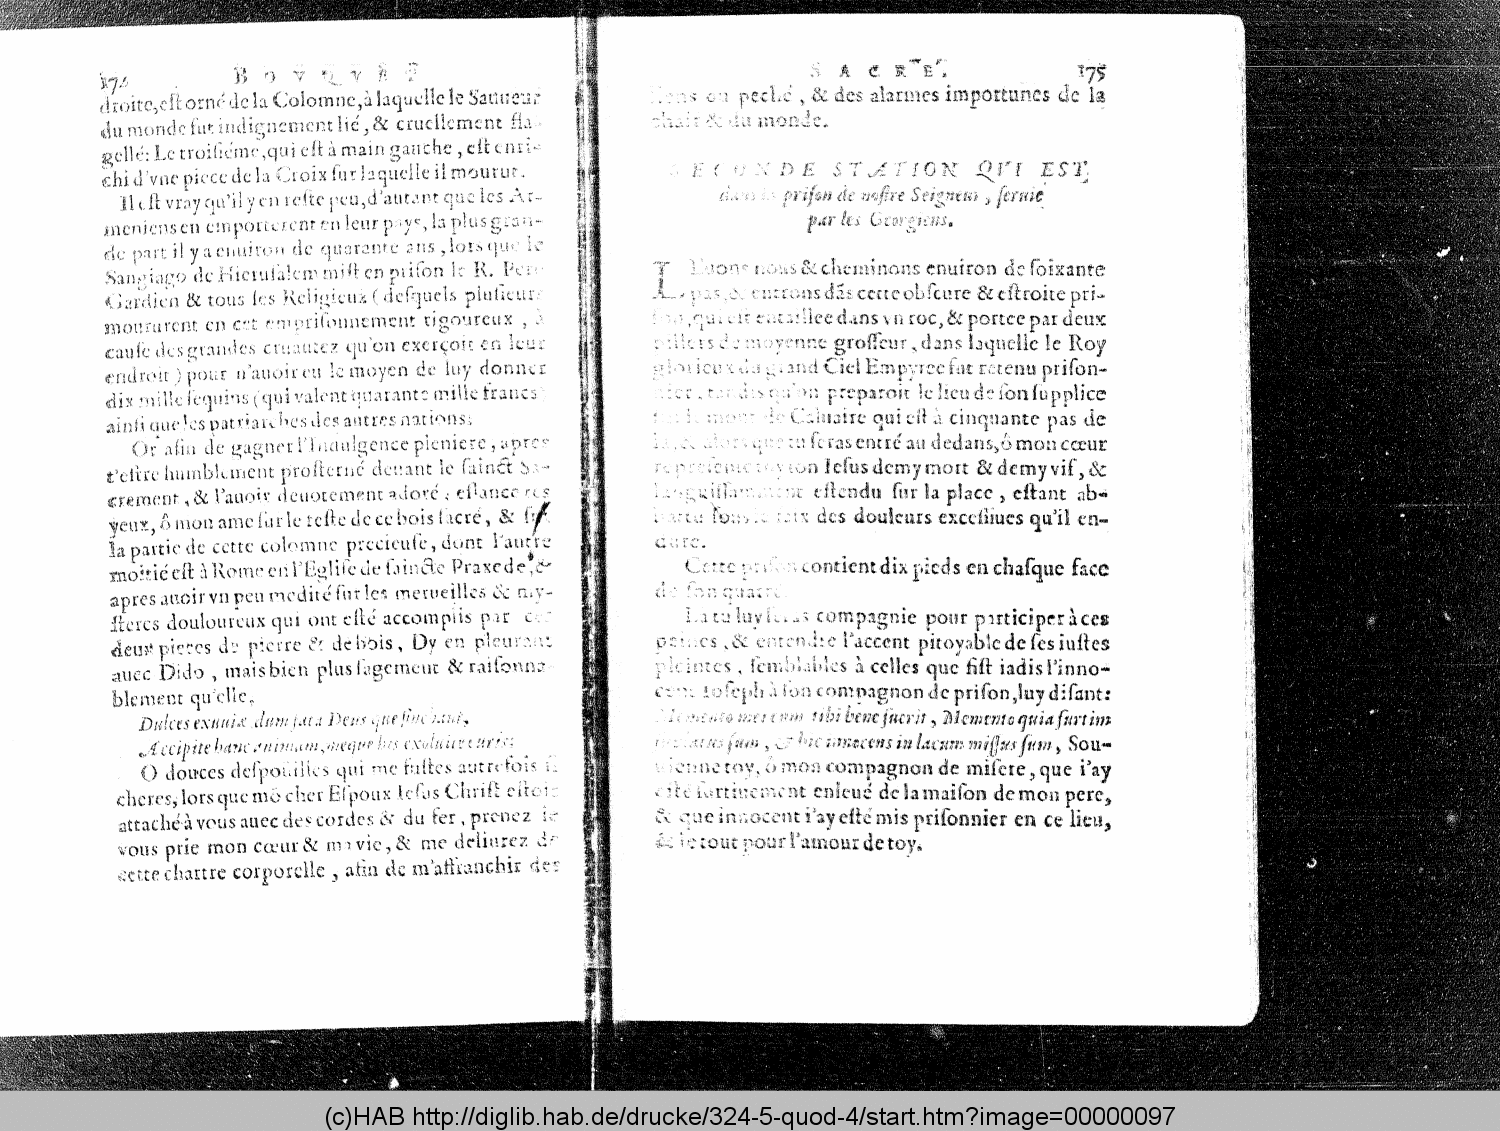 174 BOVQVET
droite, est orné de la Colomne, à laquelle le Sauueur
du monde fut indignement lié, & cruellement fla-
gellé: Le troisiéme, qui est à main gauche, est enri-
chi d'vne piece de la Croix sur laquelle il mourut.
Il est vray qu'il y en reste peu, d'autant que les Ar-
meniens en emporterent en leur pays, la plus gran-
de part il y a enuiron de quarante ans, lors que le
Sangiago de Hierusalem mist en prison le R. Pere
Gardien & tous ses Religieux (desquels plusieurs
moururent en cet emprisonnement rigoureux, à
cause des grandes cruautez qu'on exerçoit en leur
endroit) pour n'auoir eu le moyen de luy donner
dix mille sequins (qui valent quarante mille francs
ainsi que les patriarches des autres nations.
Or afin de gagner l'Indulgence pleniere, apres
t'estre humblement prosterné deuant le sainct Sa-
crement, & l'auoir deuotement adoré, eslance tes
yeux, ô mon ame sur le reste de ce bois sacré, & sur
la partie de cette colomne precieuse, dont l'autre
moitié est à Rome en l'Eglise de saincte Praxede, &
apres auoir vn peu medité sur les merueilles & my-
steres douloureux qui ont esté accomplis par ces
deux pieces de pierre & de bois, Dy en pleurant
auec Dido, mais bien plus sagement & raisonna-
blement qu'elle,
Dulces exuuiæ dum fata Deus que sinebant,
Accipite hanc animam, meque his exoluite curis:
O douces despouilles qui me fustes autrefois si
cheres, lors que mõ cher Espoux Iesus Christ estoit
attaché à vous auec des cordes & du fer, prenez ie
vous prie mon cœur & ma vie, & me deliurez de
cette chartre corporelle, afin de m'affranchir des
SACRE'. 175
liens du peché, & des alarmes importunes de la
chair & du monde.
SECONDE STATION QVI EST
dans la prison de nostre Seigneur, seruie
par les Georgiens.
LEuons nous & cheminons enuiron de soixante
pas, & entrons dãs cette obscure & estroite pri-
son, qui est entaillee dans vn roc, & portee par deux
pilliers de moyenne grosseur, dans laquelle le Roy
glorieux du grand Ciel Empyree fut retenu prison-
nier, tandis qu'on preparoit le lieu de son supplice
sur le mont de Caluaire qui est à cinquante pas de
là, & alors que tu seras entré au dedans, ô mon cœur
represente toy ton Iesus demy mort & demy vif, &
languissamment estendu sur la place, estant ab-
battu sous le faix des douleurs excessiues qu'il en-
dure.
Cette prison contient dix pieds en chasque face
de son quarré.
La tu luy feras compagnie pour participer à ces
peines, & entendre l'accent pitoyable de ses iustes
pleintes, semblables à celles que fist iadis l'inno-
cent Ioseph à son compagnon de prison, luy disant:
Memento mei cum tibi bene fuerit, Memento quia furtim
sublatus sum, & hic innocens in lacum missus sum, Sou-
uienne toy, ô mon compagnon de misere, que i'ay
esté furtiuement enleué de la maison de mon pere,
& que innocent i'ay esté mis prisonnier en ce lieu,
& le tout pour l'amour de toy.
(c)HAB http://diglib.hab.de/drucke/324-5-quod-4/start.htm?image=00000097